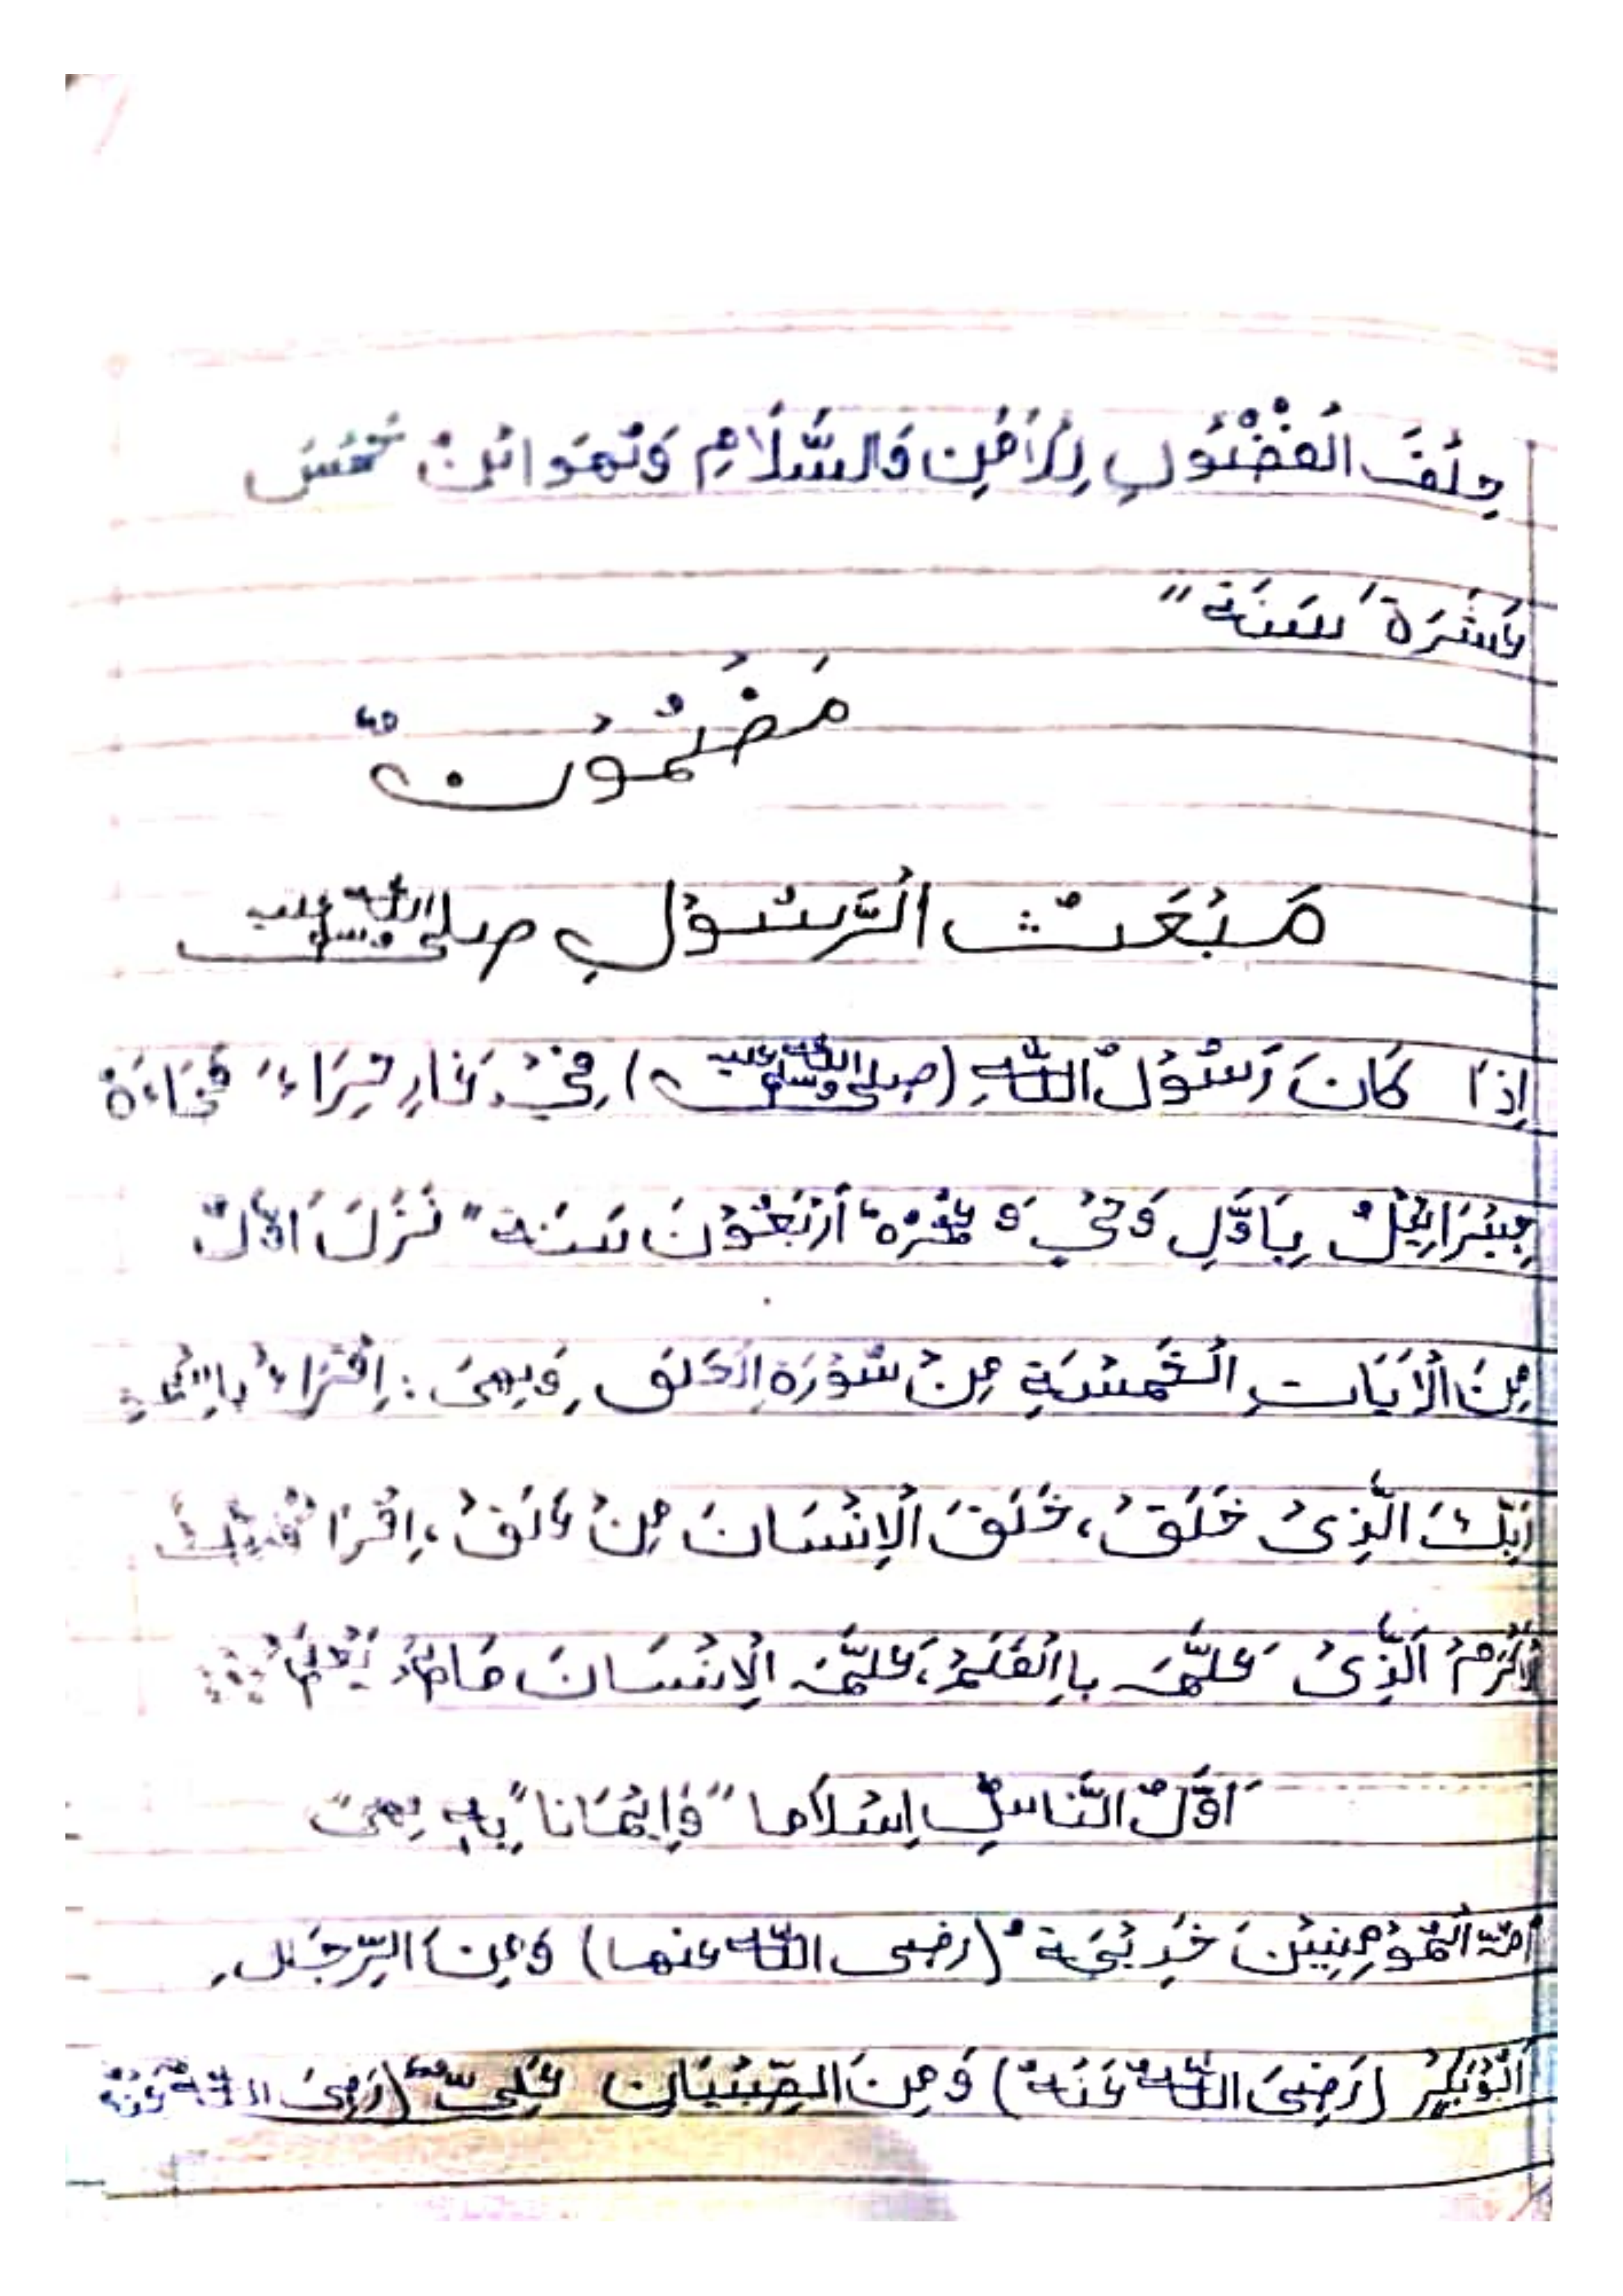 حِلْفَ الْفُضُوْلِ لِلْاَمْنِ وَالسَّلَامِ وَهُوَ ابْنُ خَمْسَ
عَشَرَةَ سَنَةً
مَضْمُوْنٌ
مَبْعَثُ الرَّسُوْلِ صلى الله عليه وسلم
اِذَا كَانَ رَسُوْلُ اللّٰهِ (صلى الله عليه وسلم) فِيْ غَارِ حِرَاءَ فَجَاءَهٗ
جِبْرَائِيْلُ بِاَوَّلِ وَحْيٍ وَ عُمْرُهٗ اَرْبَعُوْنَ سَنَةً نَزَلَ اَوَّلُ
مِنَ الْاٰيَاتِ الْخَمْسَةِ مِنْ سُوْرَةِ الْعَلَقِ وَهِىَ : اِقْرَاءْ بِاسْمِ
رَبِّكَ الَّذِىْ خَلَقْ، خَلَقَ الْاِنْسَانَ مِنْ عَلَقْ، اِقْرَا وَرَبُّكَ
الْاَكْرَمُ الَّذِىْ عَلَّمَ باِالْقَلَمْ، عَلَّمَ الْاِنْسَانَ مَا لَمْ يَعْلَمْ
اَوَّلُ النَّاسِ اِسْلَامًا وَاِيْمَانًا بِهٖ هِىَ
اُمُّ الْمُؤْمِنِيْنَ خَدِيْجَةُ (رضى اللّٰه عنها) وَمِنَ الرِّجَالِ
اَبُوْبَكِرْ (رَضِىَ اللّٰهُ عَنْهُ) وَمِنَ الصِّبْيَانِ عَلِىٌّ (رَضِىَ اللّٰهُ عَنْهُ